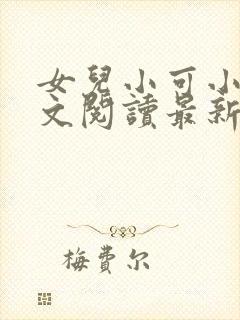 女兒小可小
文閱讀最新
梅費尔